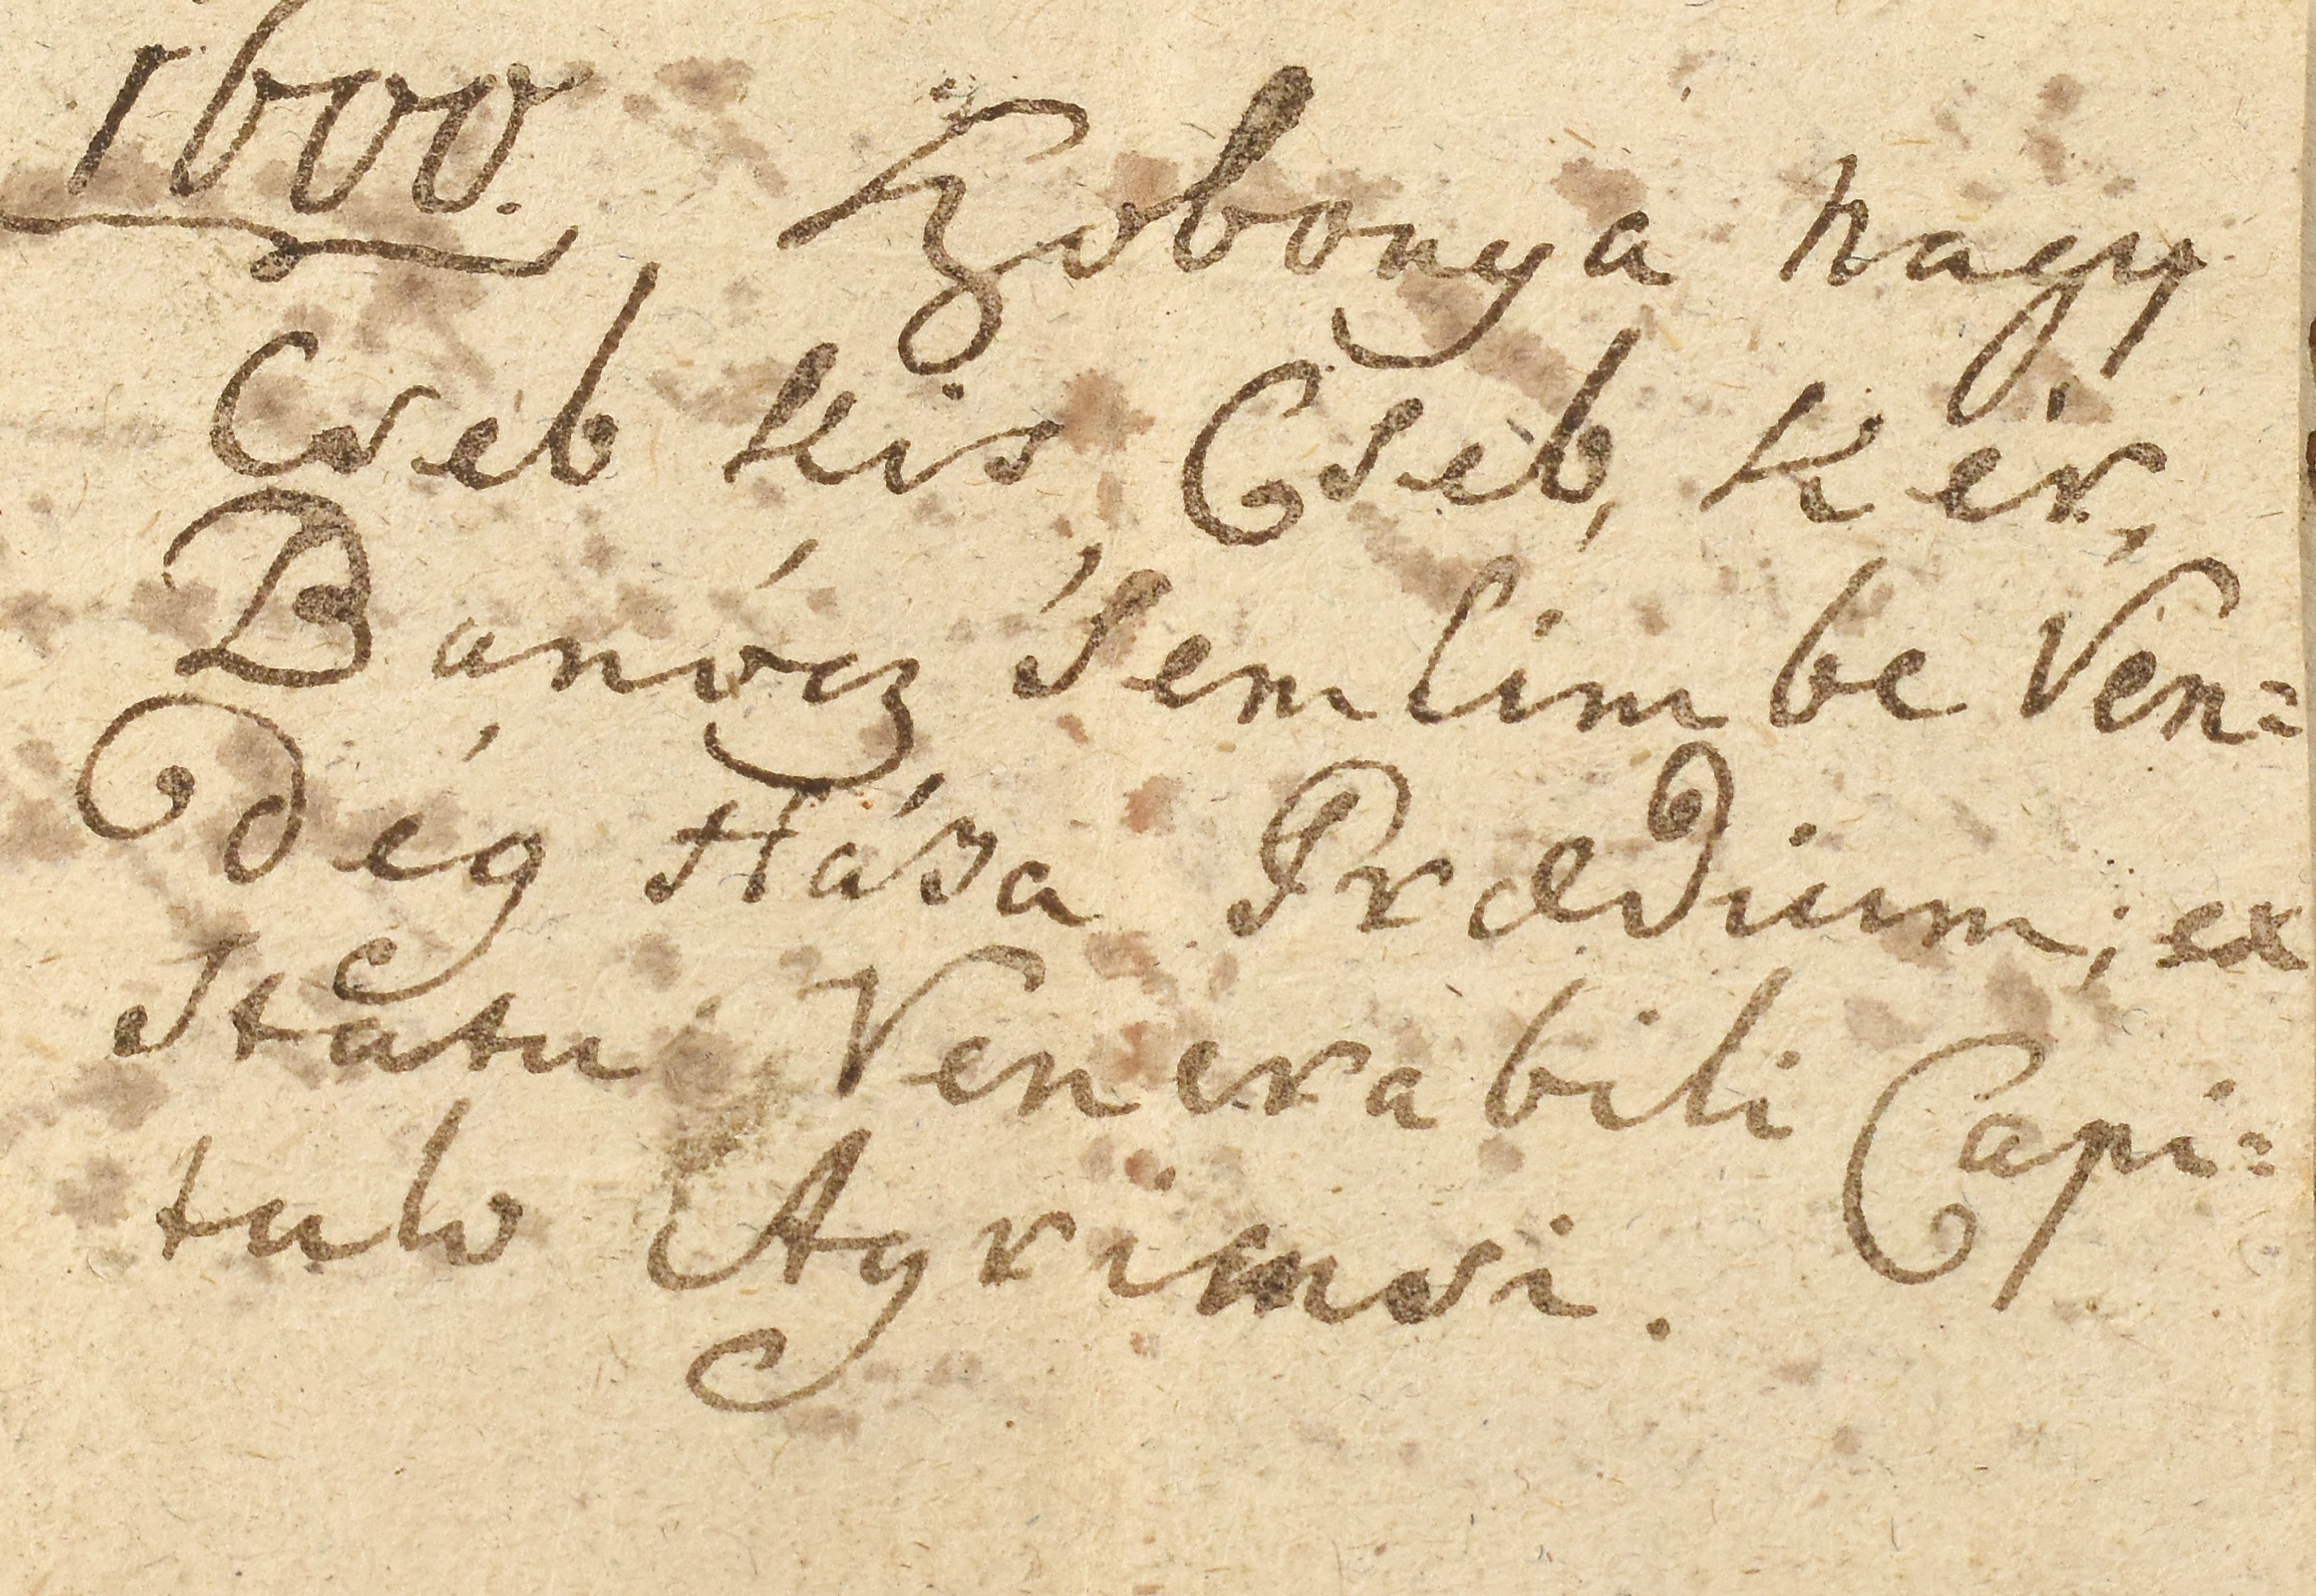 1600. Zobonya Nagy
Cseb Kis, Cseb, Kér,
Banócz 'Semlimbe Ven=
dég Háza Prædium, ex
Statu Venerabili Capi=
tulo Agriensi.